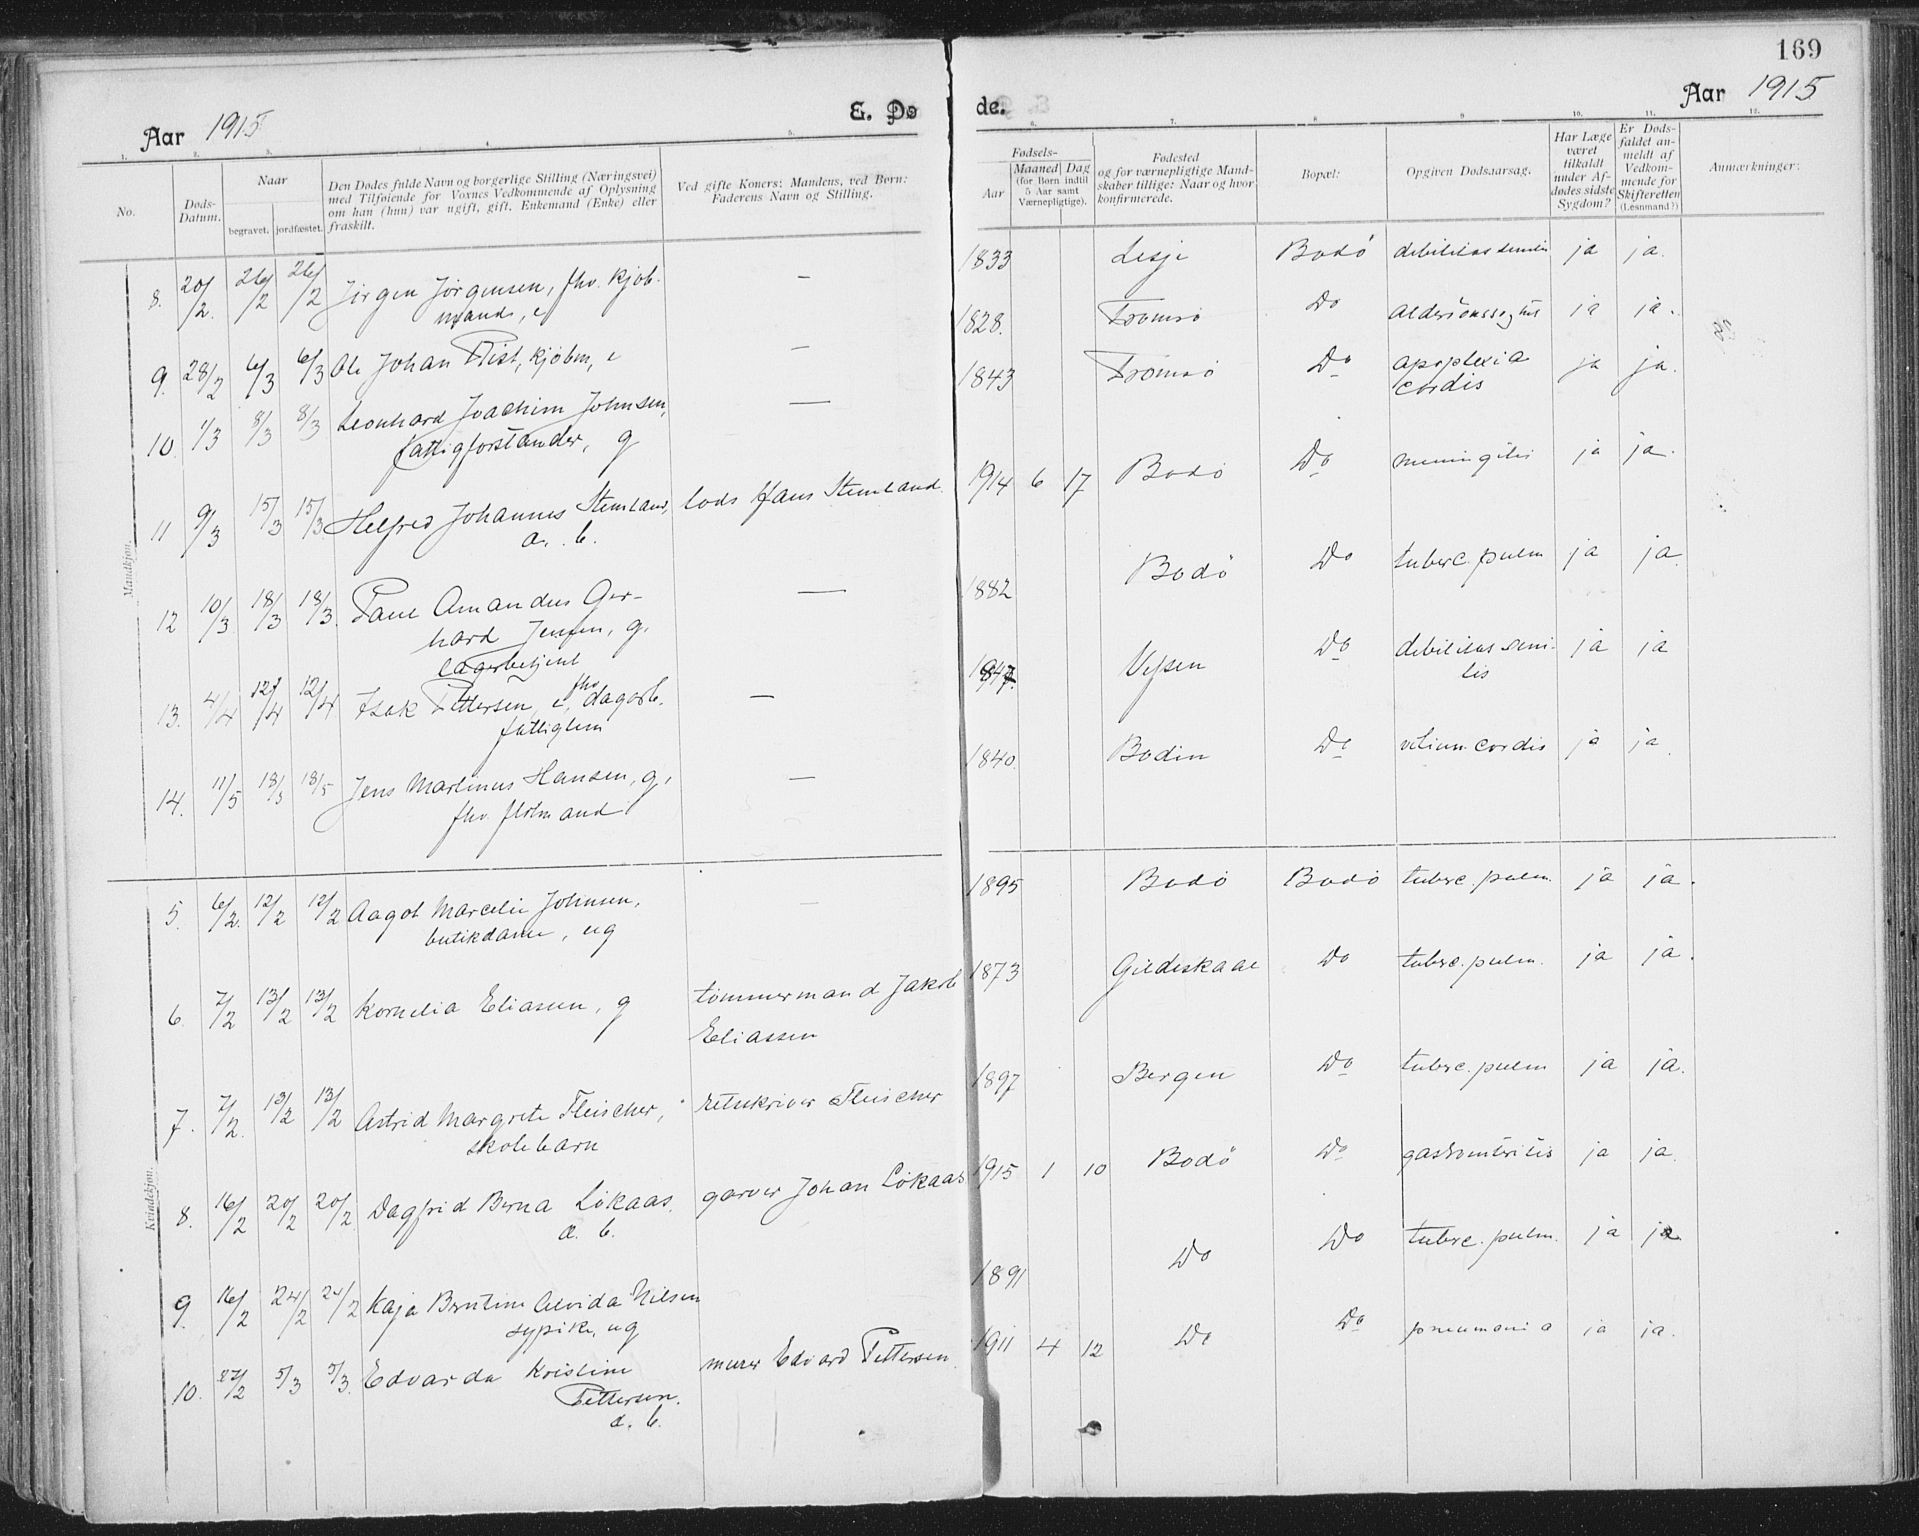 169
Aar 1915
E. Dø
de.
Aar 1915
1. 2. 3. 4. 5. 6. 7. 8. 9. 10. 11. 12.
No.
Døds-Datum.
Naar
begravet. jordfæstet.
Den Dødes fulde Navn og borgerlige Stilling (Næringsvei)
med Tilføiende for Voxnes Vedkommende af Oplysning
om han (hun) var ugift, gift, Enkemand (Enke) eller
fraskilt.
Ved gifte Koner: Mandens, ved Børn:
Faderens Navn og Stilling.
Fødsels-
Aar
Maaned Dag
(for Born indtil
5 Aar samt
Værnepligtige).
Fødested
og for værnepligtige Mand-
skaber tillige: Naar og hvor
konfirmerede.
Bopæl:
Opgiven Dødsaarsag.
Har Læge
været
tilkaldt
under Af-
dødes sidste
Sygdom?
Er Døds-
faldet an-
meldt af
Vedkom-
mende for
Skifteretten
(Lesnmand?)
Anmærkninger:
Mandkjøn.
8. 20/2. 26/2 26/2 Jørgen Jørgensen, fhv. kjøb- — 1833 Lesje Bodø debilitas senilis ja ja.
mand, e
9. 28/2 6/3 6/3 Ole Johan Rist, kjøbm, e — 1828. Tromsø Do ja ja.
10. 1/3 8/3 8/3 Leonhard Joachim Johnsen, — 1843 Tromsø Do apoplexia ja ja.
fattigforstander, g cordis
11 9/3 15/3 15/3 Helfred Johannes Stemland, lods Hans Stemland 1914 6 17 Bodø Do meningitis ja ja.
a. b.
12 10/3 18/3 18/3 Paul Amandus Ger- — 1882 Bodø Do tuberc. pulm ja ja.
hard Jensen, g.
lagerbetjent
13. 4/4 12/4 12/4 Isak Pettersen, e, fhv dagarb. — 1847. Vefsen Do debilitas seni- ja ja
fattiglem lis
14. 11/5 18/5 18/5 Jens Martinus Hansen, g, — 1840. Bodin Do vitium cordis ja ja.
Kvindekjøn.
5. 6/2. 12/2 12/2 Aagot Marcelie Johnsen, — 1895 Bodø Bodø tuberc. pulm. ja ja.
butikdame, ug
6. 7/2 13/2 13/2 Kornelia Eliassen, g tømmermand Jakob 1873 Gildeskaal Do tuberc. pulm. ja ja.
Eliassen
7. 7/2. 13/2 13/2 Astrid Margrete Fleischer, Fleischer 1897 Bergen Do tuberc. pulm ja ja.
skolebarn
8. 16/2 20/2 20/2 Dagfrid Berna Løkaas. garver Johan Løkaas 1915 1 10 Bodø Do gastroenteritis ja ja.
a. b.
9. 16/2 24/2 24/2 Kaja Bentine Alvida Nilsen 1891 Do Do tuberc. pulm. ja ja.
sypike, ug
10. 27/2 5/3 5/3. Edvarda Kristine murer Edvard Pettersen. 1911 4 12 Do Do pneumonia ja ja.
Pettersen.
a. b.